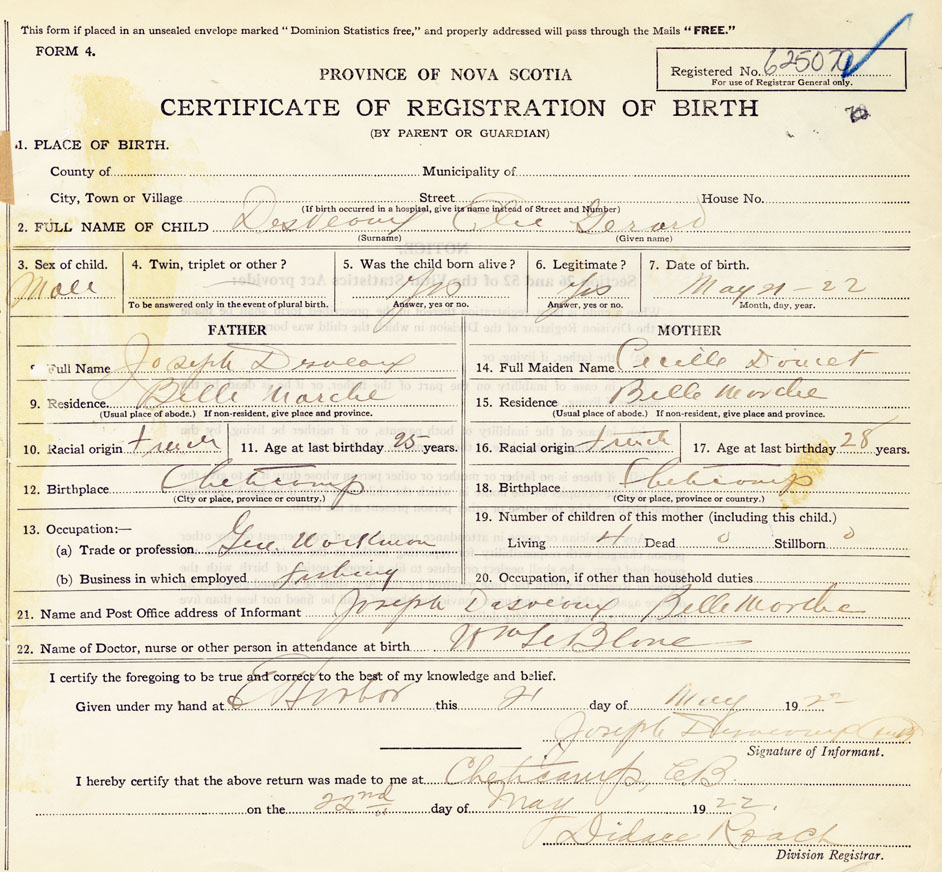 This form if placed in an unsealed envelope marked "Dominion Statistics free," and properly addressed will pass through the Mails "FREE."
FORM 4.
Registered No. 62507
For use of Registrar General only.
PROVINCE OF NOVA SCOTIA
CERTIFICATE OF REGISTRATION OF BIRTH
(BY PARENT OR GUARDIAN)
1. PLACE OF BIRTH.
County of Municipality of
City, Town or Village Street House No.
(If birth occurred in a hospital, give its name instead of Street and Number)
2. FULL NAME OF CHILD Desveaux Elie Gerard
(Surname) (Given name)
3. Sex of child. 4. Twin, triplet or other? 5. Was the child born alive? 6. Legitimate? 7. Date of birth.
Male Yes Yes May 21-22
To be answered only in the event of plural birth. Answer, yes or no. Answer, yes or no. Month, day, year.
FATHER MOTHER
Full Name Joseph Desveaux 14. Full Maiden Name Cecille Doucet
9. Residence Belle Marche 15. Residence Belle Marche
(Usual place of abode.) If non-resident, give place and province. (Usual place of abode.) If non-resident, give place and province.
10. Racial origin French 11. Age at last birthday 25 years. 16. Racial origin French 17. Age at last birthday 28 years.
12. Birthplace Cheticamp 18. Birthplace Cheticamp
(City or place, province or country.) (City or place, province or country.)
13. Occupation:— 19. Number of children of this mother (including this child.)
(a) Trade or profession Gen. Workman Living 4 Dead 0 Stillborn 0
(b) Business in which employed fishing 20. Occupation, if other than household duties
21. Name and Post Office address of Informant Joseph Desveaux Belle Marche
22. Name of Doctor, nurse or other person in attendance at birth Wm LeBlanc
I certify the foregoing to be true and correct to the best of my knowledge and belief.
Given under my hand at E Harbor this 21 day of May 1922
Joseph Desveaux
Signature of Informant.
I hereby certify that the above return was made to me at Cheticamp, C.B.
on the 22nd day of May 1922.
Didace Roach
Division Registrar.